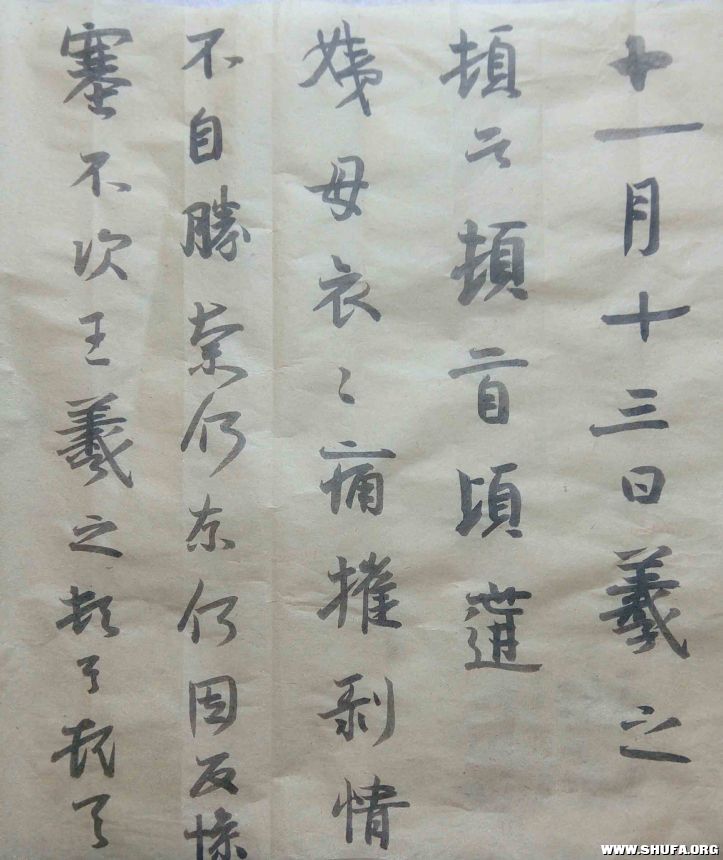 十一月十三日羲之
頓首頓首頃遘
姨母哀〻痛摧剥情
不自勝奈何奈何因反慘
塞不次王羲之頓首頓首
WWW.SHUFA.ORG